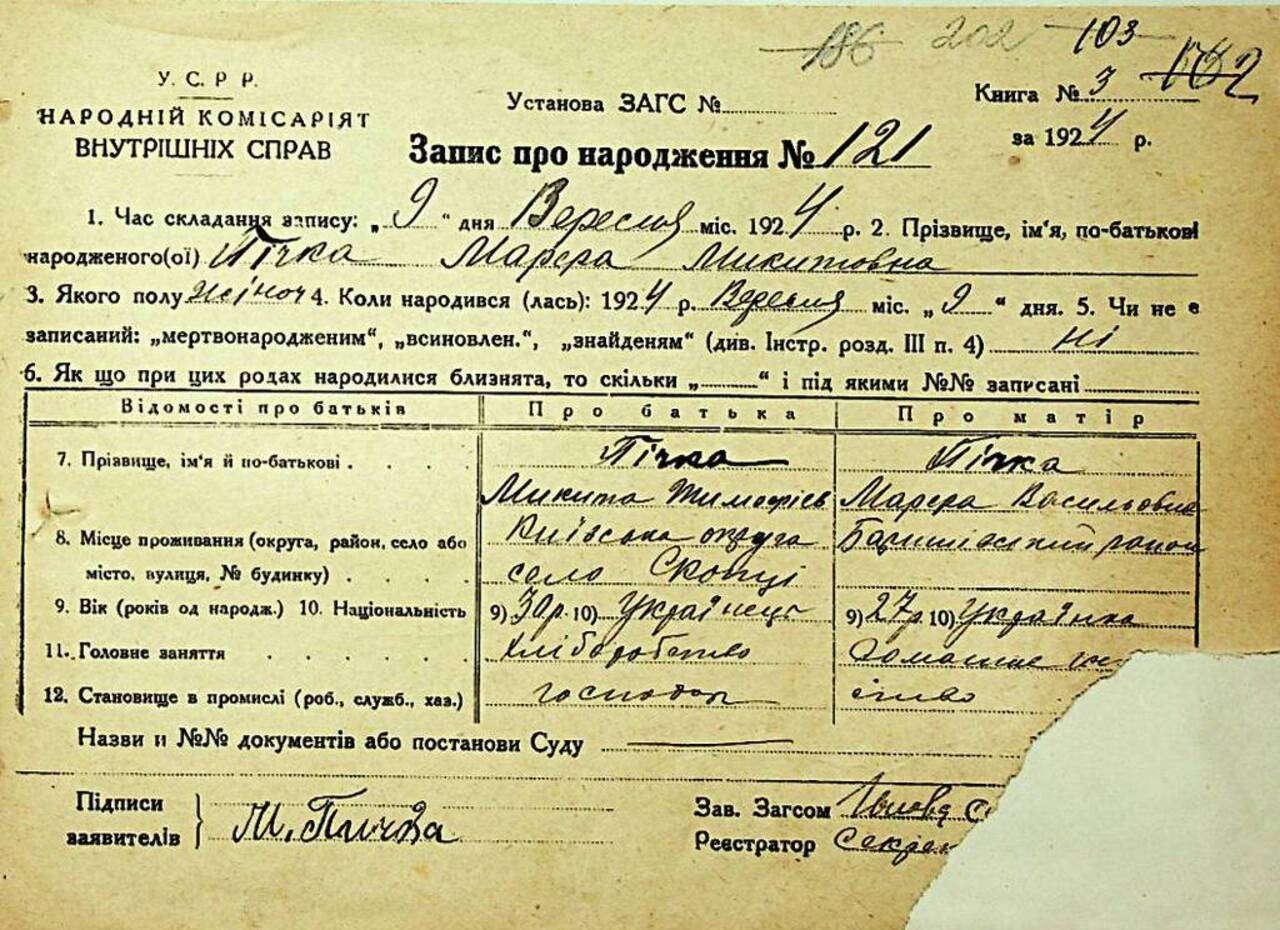 186 202 103
У. С. Р Р.
НАРОДНІЙ КОМІСАРІЯТ
ВНУТРІШНІХ СПРАВ
Установа ЗАГС №
Книга № 3
за 1924 р.
Запис про народження № 121
1. Час складання запису: „ 9 “ дня Вересня міс. 1924 р. 2. Прізвище, ім'я, по-батькові
народженого(ої) Пічка Марфа Микитовна
3. Якого полу жіноч 4. Коли народився (лась): 1924 р. Вересня міс. „ 9 “ дня. 5. Чи не є
записаний: „мертвонародженим“, „всиновлен.“, „знайденям“ (див. Інстр. розд. III п. 4) ні
6. Як що при цих родах народилися близнята, то скільки „ “ і під якими №№ записані
Відомості про батьків Про батька Про матір
7. Прізвище, ім'я й по-батькові Пічка Пічка
Микита Тимофієв Марфа Васильовна
8. Місце проживання (округа, район, село або Київська округа Баришівський район
місто, вулиця, № будинку) село Скопці
9. Вік (років од народж.) 10. Національність 9) 30 р. 10) Українець 9) 27 р. 10) Українка
11. Головне заняття Хліборобство домашне
12. Становище в промислі (роб., служб., хаз.) господар
Назви и №№ документів або постанови Суду
Підписи
заявителів М. Пичка
Зав. Загсом Голова
Реєстратор Секрет